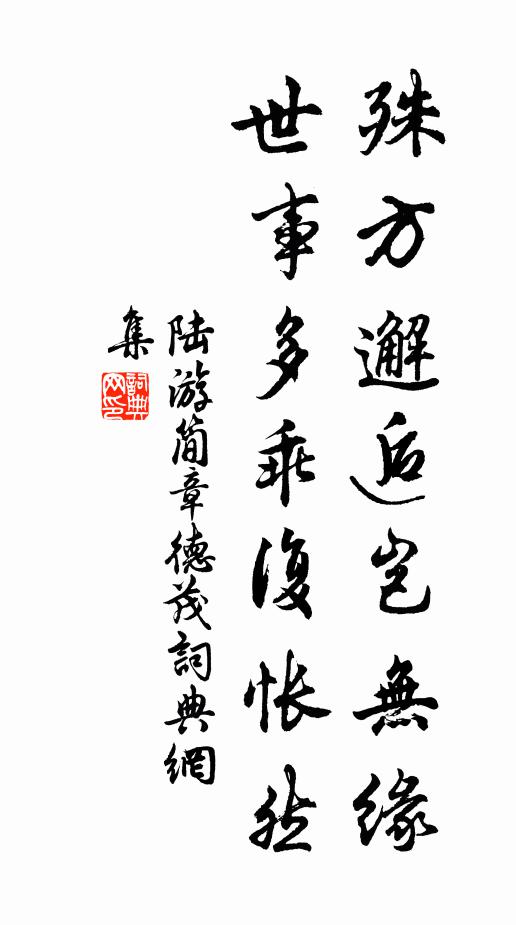 殊方邂逅豈無緣
世事多乖復悵然
陆游简章德茂詞典網
集
詞典網印